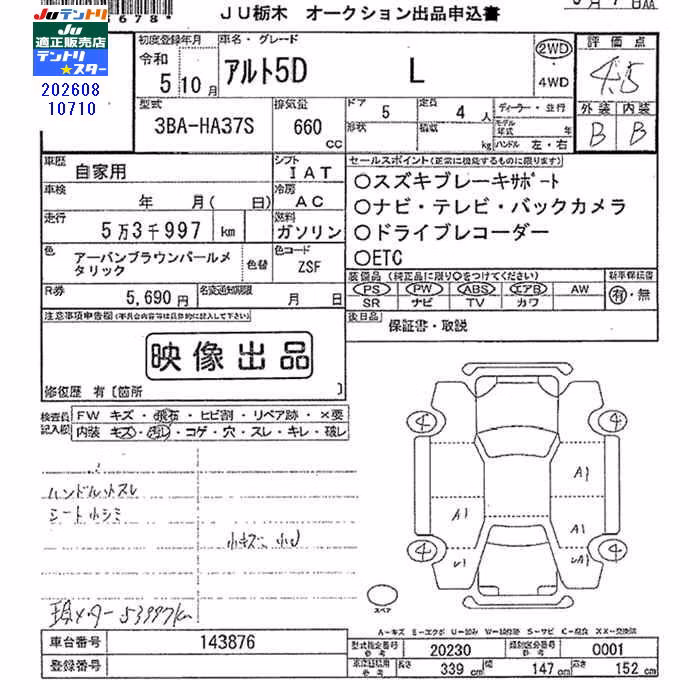 Juテントリ
Ju
適正販売店
テントリ
★スター
202608
10710
JU栃木 オークション出品申込書
初度登録年月
令和
5 10月
車名・グレード
アルト5D L
2WD
・
4WD
評価点
4.5
外装 内装
B B
型式
3BA-HA37S
排気量
660
cc
ドア
5
定員
4 人
ディーラー・並行
形状
積載
kg
モデル年式 年
ハンドル 左・右
車歴
自家用
シフト
IAT
車検
年 月( 日)
冷房
AC
走行
5万3千997 km
燃料
ガソリン
色
アーバンブラウンパールメタリック
色替
色コード
ZSF
R券
5,690円
名変通知期限
月 日
セールスポイント(正常に機能するものに限ります)
〇スズキブレーキサポート
〇ナビ・テレビ・バックカメラ
〇ドライブレコーダー
〇ETC
装備品 (純正品に限り〇をつけてください)
PS PW ABS エアB AW
SR ナビ TV カワ
新車保証書
有・無
後日品
保証書・取説
注意事項申告欄(不具合内容等は具体的に記入して下さい)
映像出品
修復歴 有〔箇所 〕
検査員記入欄
FW キズ・飛石・ヒビ割・リペア跡・×要
内装 キズ・汚レ・コゲ・穴・スレ・キレ・破レ
ハンドル小スレ
シート小シミ
小キズ 小U
現メーター 53997km
4 4
A1
A1 A1
4 4
U1 UA1
スペア
A-キズ E-エクボ U-凹み W-補修跡 S-サビ C-腐食 XX-交換済
車台番号
143876
登録番号
型式指定番号
参考
20230
類別区分番号
参考
0001
車庫証明用
参考
長さ
339
幅
147
高さ
152
cm